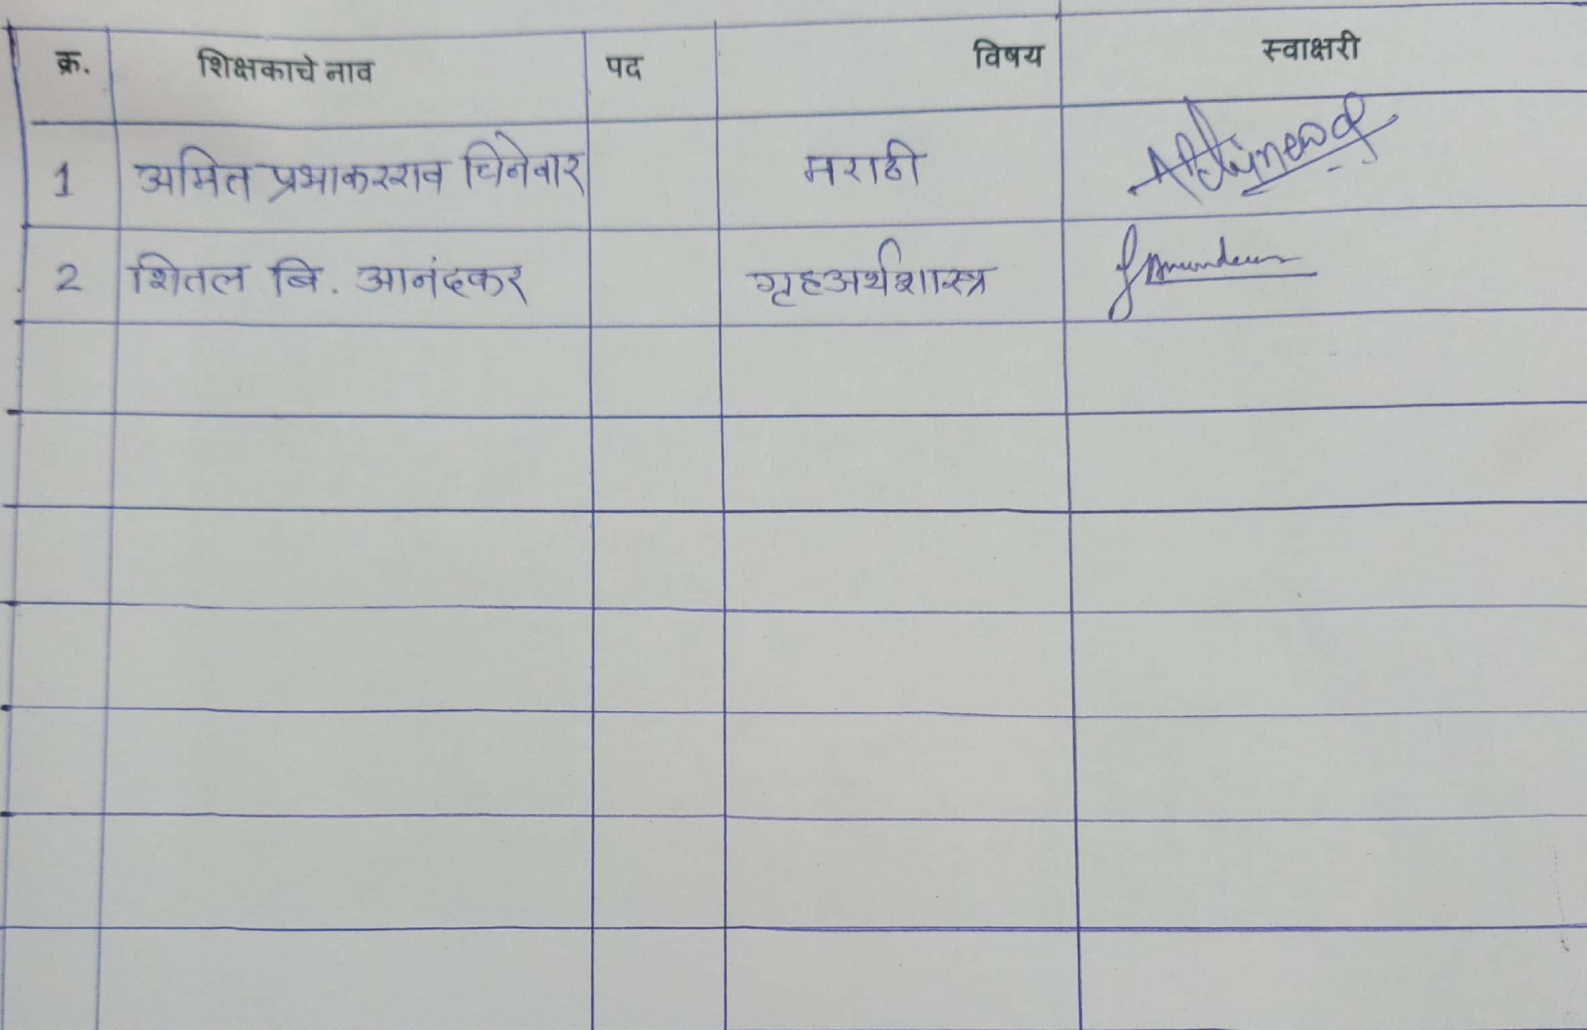 क्र. शिक्षकाचे नाव पद विषय स्वाक्षरी
1 अमित प्रभाकरराव चिनेवार मराठी
2 शितल बि. आनंदकर गृहअर्थशास्त्र